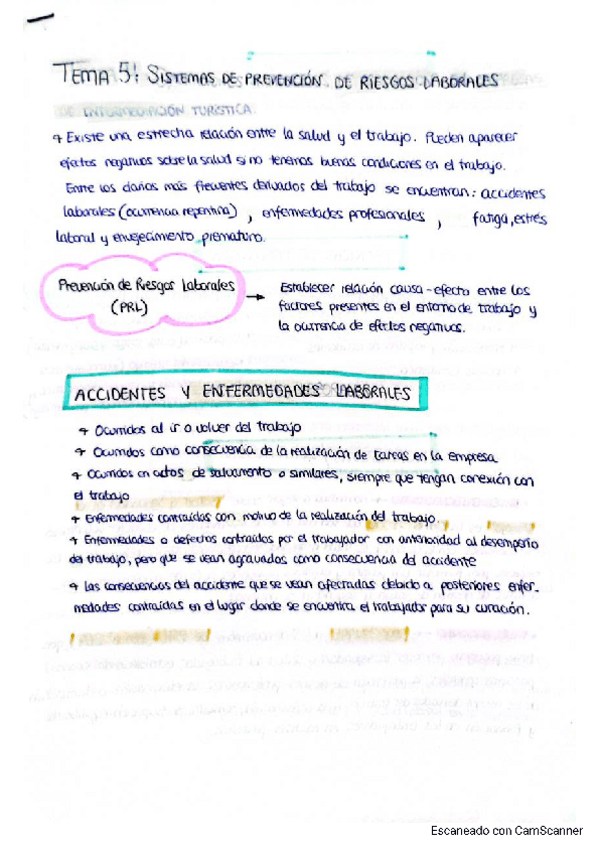 TEMA 5: SISTEMAS DE PREVENCIÓN DE RIESGOS LABORALES
DE INTERMEDIACIÓN TURISTICA.
→ Existe una estrecha relación entre la salud y el trabajo. Pueden aparecer
efectos negativos sobre la salud si no tenemos buenas condiciones en el trabajo.
Entre los daños más frecuentes derivados del trabajo se encuentran: accidentes
laborales (ocurrencia repentina), enfermedades profesionales, fatiga, estrés
laboral y envejecimiento prematuro.
Prevención de Riesgos Laborales
(PRL)
→ Establecer relación causa-efecto entre los
factores presentes en el entorno de trabajo y
la ocurrencia de efectos negativos.
ACCIDENTES Y ENFERMEDADES LABORALES
→ Ocurridos al ir o volver del trabajo
→ Ocurridos como consecuencia de la realización de tareas en la empresa
→ Ocurridos en actos de salvamento o similares, siempre que tengan conexión con
el trabajo
→ Enfermedades contraídas con motivo de la realización del trabajo.
→ Enfermedades o defectos contraídos por el trabajador con anterioridad al desempeño
del trabajo, pero que se vean agravados como consecuencia del accidente
→ Las consecuencias del accidente que se vean afectadas debido a posteriores enfer-
medades contraídas en el lugar donde se encuentra el trabajador para su curación.
Escaneado con CamScanner